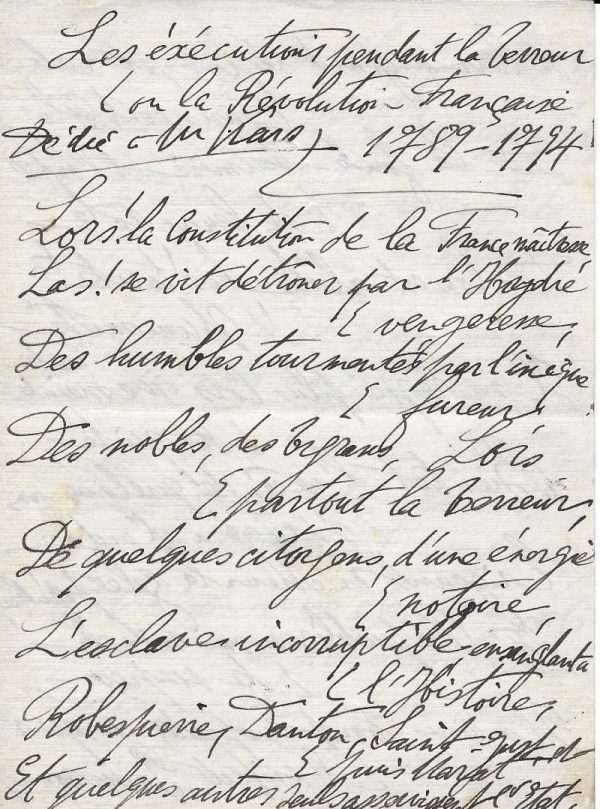 Les éxécutions pendant la terreur
( ou la Révolution Française
Dédié a 1789-1794
Lors! la Constitution de la France
Las! se vit détrôner par l'
( vengeresse,
Des humbles tourmentés par l'
( fureur
Des nobles, des tyrans, Lors
( partout la terreur,
De quelques citoyens, d'une énergie
( notoire,
L'esclave incorruptible ensanglanta
( l'Histoire,
Robespierre, Danton, Saint Just, et
( puis Marat
Et quelques autres